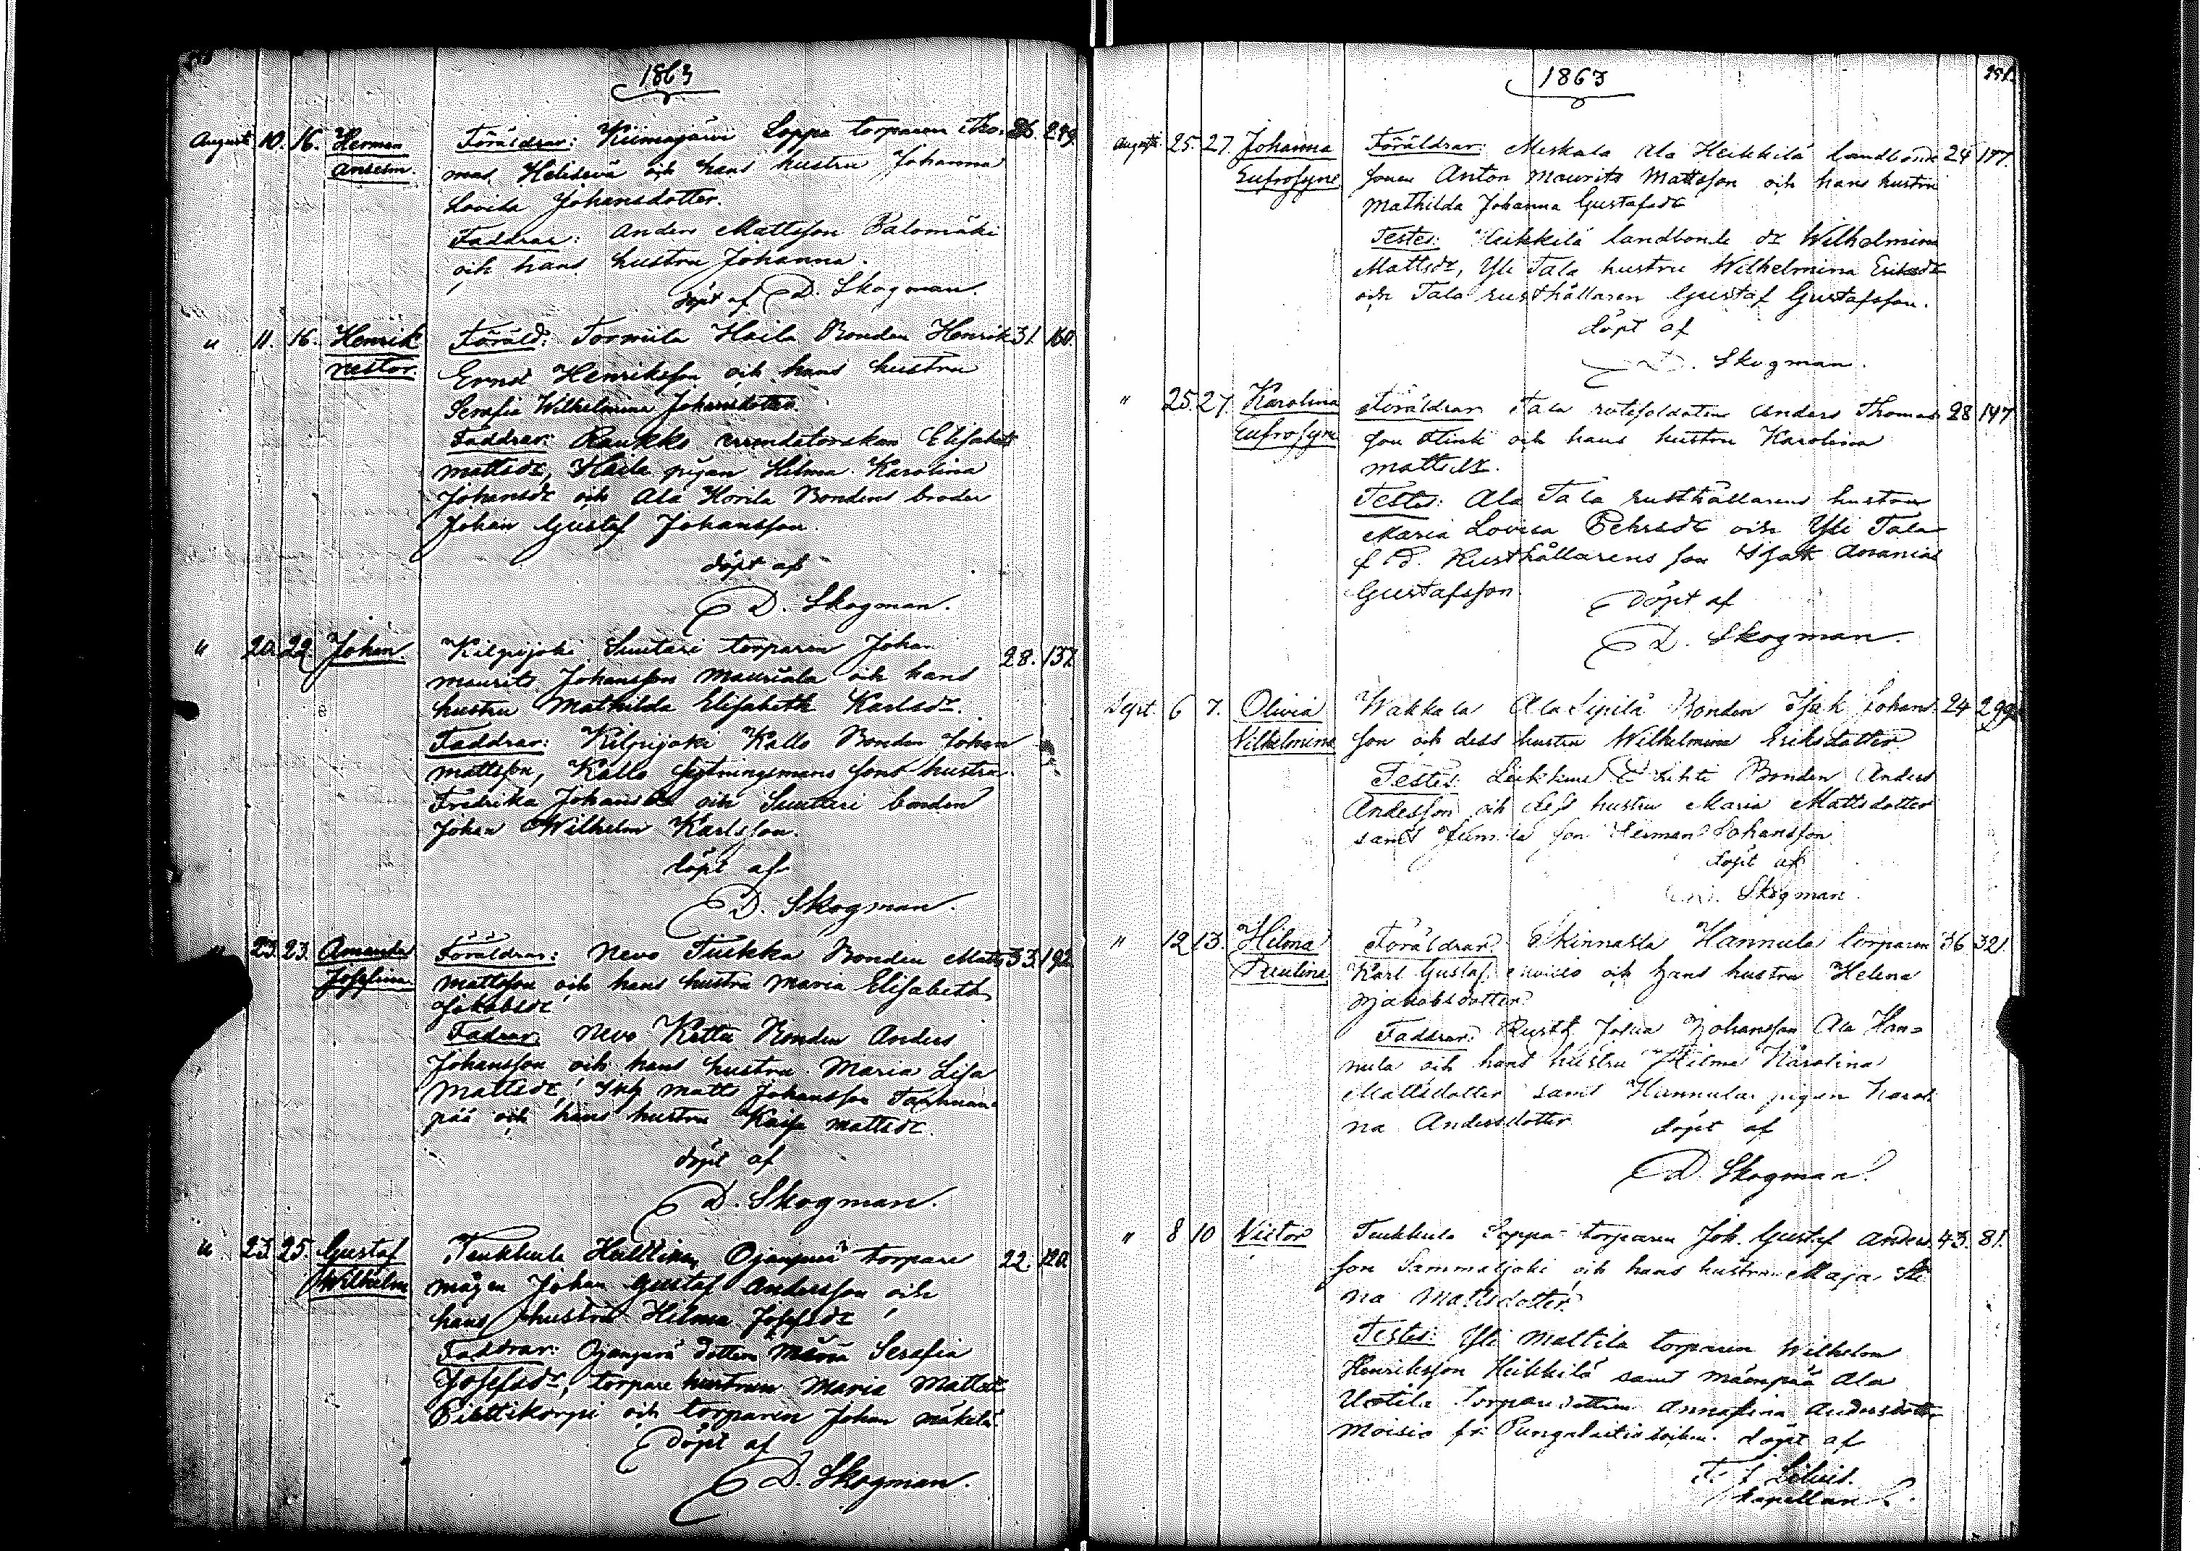 1863
August 10. 16. Herman Föräldrar: Kiimajärvi Loppe torparen Tho- 36. 249.
Anselm. mas Helisevä och hans hustru Johanna
Lovisa Johansdotter.
Faddrar: Anders Mattsson Palomäki
och hans hustru Johanna.
döpt af D. Skogman.
" 11. 16. Henrik Föräld: Tormila Haila Bonden Henrik 31. 160.
Nestor. Ernst Henriksson och hans hustru
Serafia Wilhelmina Johansdotter.
Faddrar: Raukko arrendatorskan Elisabet
Mattsdr, Haila pigan Hilma Karolina
Johansdr och Ala Hovila Bondens broder
Johan Gustaf Johansson.
döpt af
D. Skogman.
" 20. 22. Johan. Kilpijoki Suutari torparen Johan 28. 137.
Maurits Johansson Mauriala och hans
hustru Mathilda Elisabeth Karlsdr.
Faddrar: Kilpijoki Kallo Bonden Johan
Mattsson, Kallo sytningsmans sons hustru
Fredrika Johansdr och Suutari bonden
Johan Wilhelm Karlsson.
döpt af
D. Skogman.
" 23. 23. Amanda Föräldrar: Nevo Tuikka Bonden Matts 33. 192.
Josefina. Mattsson och hans hustru Maria Elisabeth
Jakobsdr
Fadrar: Nevo Kettu Bonden Anders
Johansson och hans hustru Maria Lisa
Mattsdr, Inh Matts Johansson Tanhuan-
pää och hans hustru Kaisa Mattsdr.
döpt af
D. Skogman.
" 23. 25. Gustaf Teukkula Hulttinen Ojanperä torpare 22. 120.
Wilhelm mågen Johan Gustaf Andersson och
hans hustru Hilma Josefsdr
Faddrar: Ojanperä dottern Maria Serafia
Josefsdr, torpare hustrun Maria Mattsdr
Piettikorpi och torparen Johan Mäkelä.
döpt af
D. Skogman.
1863
Augusti 25. 27. Johanna Föräldrar: Meskala Ala Heikkilä landbonde 24 177.
Eufrosyne sonen Anton Maurits Mattsson och hans hustru
Mathilda Johanna Gustafsdr
Testes: Heikkilä landbonde dr Wilhelmina
Mattsdr, Yli Tala hustru Wilhelmina Eriksdr
och Tala rusthållaren Gustaf Gustafsson.
döpt af
D. Skogman.
" 25. 27. Karolina Föräldrar Tala rotesoldaten Anders Thomas- 28 147
Eufrosyne son Flink och hans hustru Karolina
Mattsdr.
Testes: Ala Tala rusthållarens hustru
Maria Lovisa Pehrsdr och Yli Tala
f. d. Rusthållarens son Isak Ananias
Gustafsson.
döpt af
D. Skogman.
Sept. 6 7. Olivia Wakkala Ala Sipilä Bonden Isak Johans- 24 299
Vilhelmina son och dess hustru Wilhelmina Eriksdotter
Testes: Bonden Anders
Andersson och dess hustru Maria Mattsdotter
samt son Herman Johansson
döpt af
D. Skogman.
" 12 13. Hilma Föräldrar: Skinnarla Hannula torparen 36 32.
Paulina Karl Gustaf och hans hustru Helena
Jakobsdotter
Faddrar: Rusth. Johansson Ala Han-
nula och hans hustru Hilma Karolina
Mattsdotter samt Hannula pigan Karoli-
na Andersdotter
döpt af
D. Skogman.
" 8 10 Victor Teukkula Loppe torparen Joh. Gustaf Anders- 43. 81.
son Sammaljoki och hans hustru Maja Sti-
na Mattsdotter
Testes: Yli Mattila torparen Wilhelm
Henriksson Heikkilä samt Mäenpää Ala
Uotila torparedottern Annastina Andersdotter
Moisio fr. Pungalaitio socken. döpt af
Kapellan